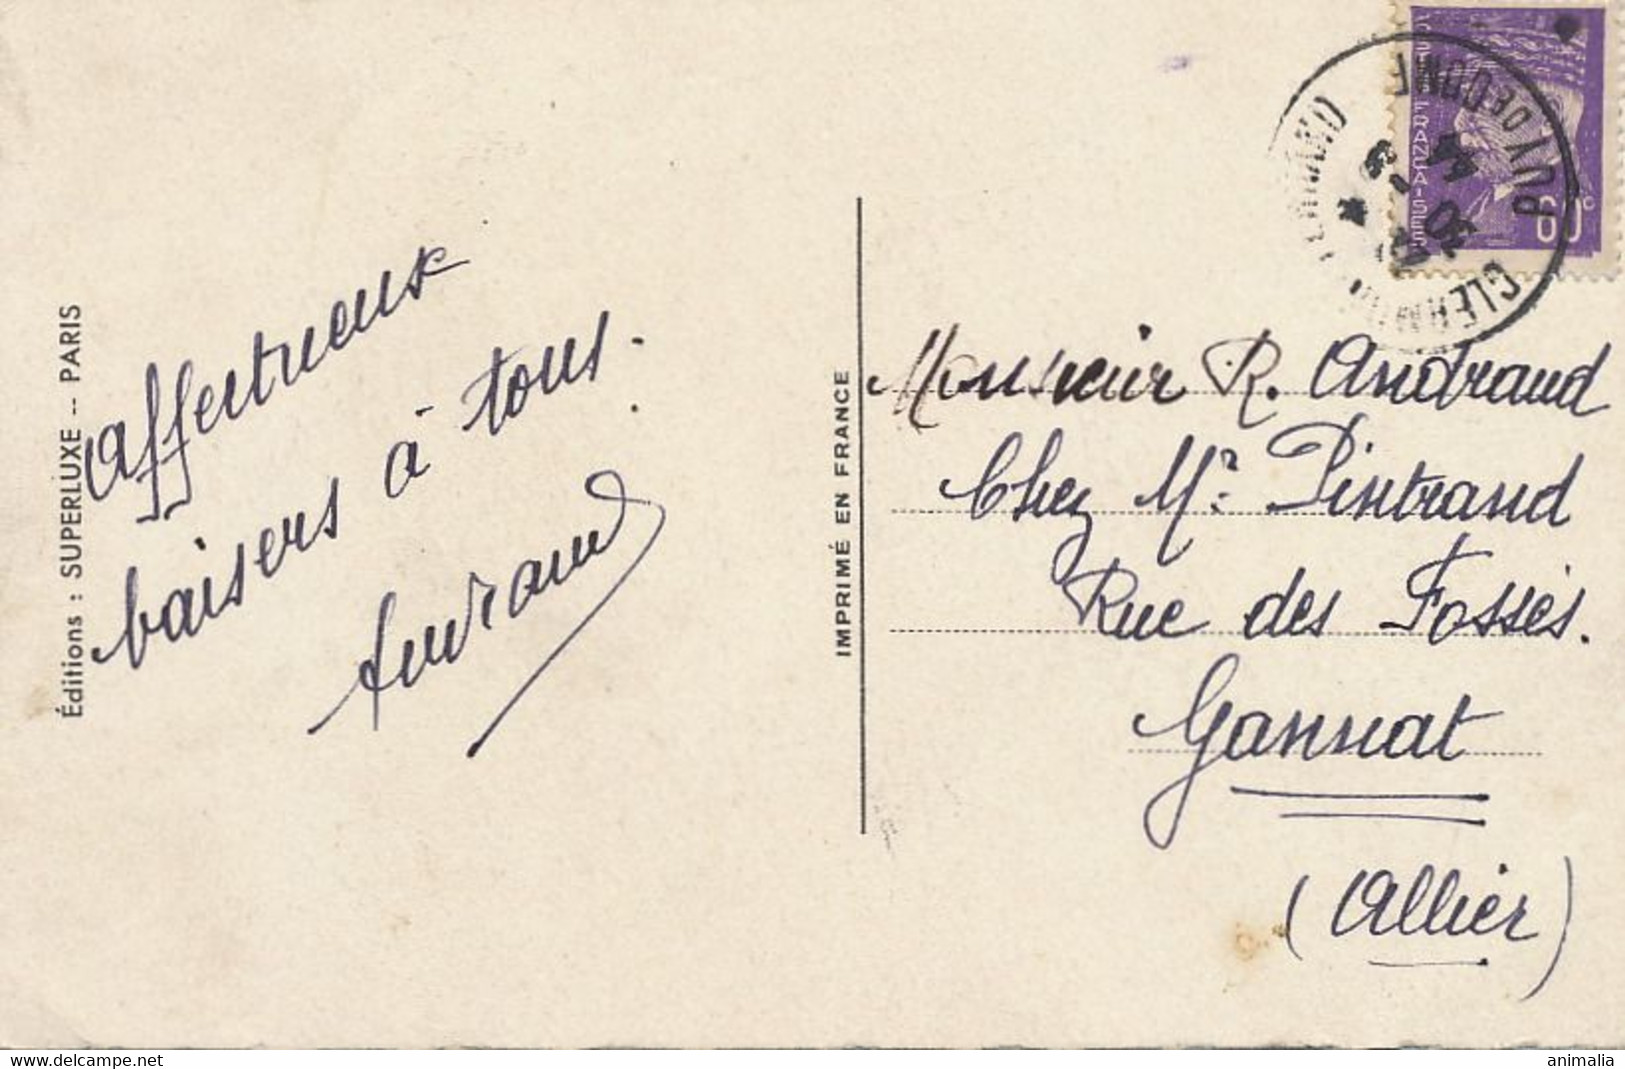 Affectueux
baisers à tous.
Éditions : SUPERLUXE -- PARIS
IMPRIMÉ EN FRANCE
PUY DE DOME
CLERMONT FERRAND
30
44
60c
Monsieur R. Andraud
Chez Mr. Pintrand
Rue des Fossés.
Gannat
(Allier)
www.delcampe.net
animalia